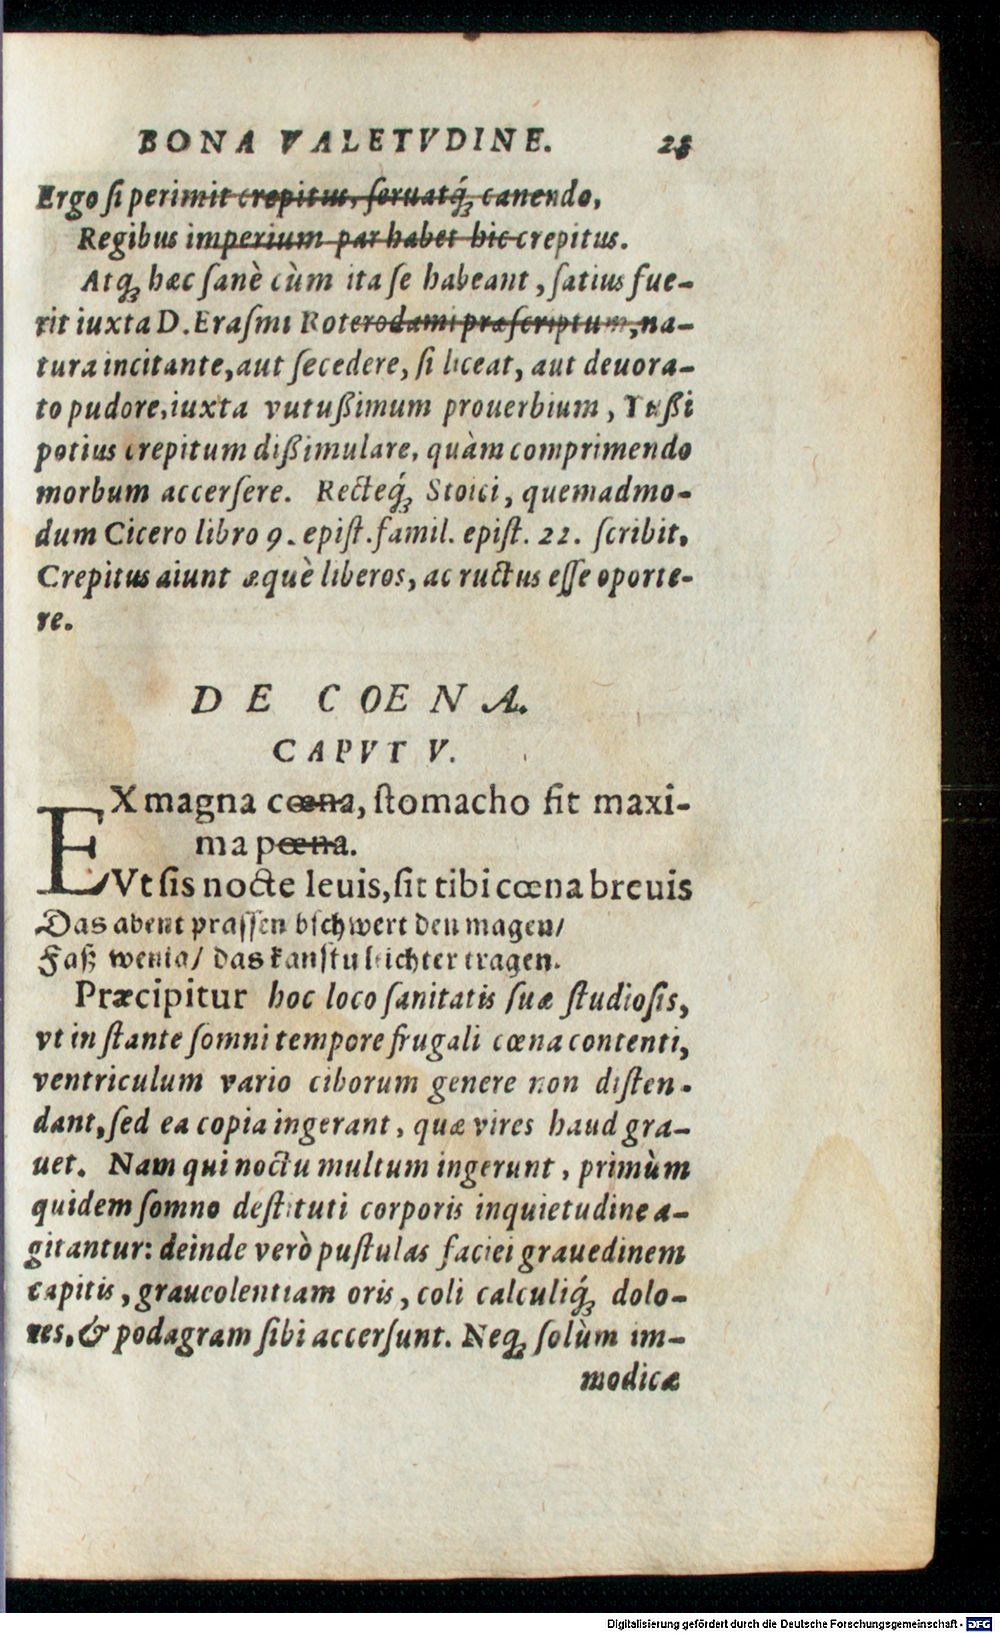 BONA VALETVDINE. 25
Ergo si perimit crepitus, seruatq́; canendo,
Regibus imperium par habet hic crepitus.
Atq; hæc sanè cùm ita se habeant, satius fue-
rit iuxta D. Erasmi Roterodami præscriptum, na-
tura incitante, aut secedere, si liceat, aut deuora-
to pudore, iuxta vutußimum prouerbium, Tußi
potius crepitum dißimulare, quàm comprimendo
morbum accersere. Recteq́; Stoici, quemadmo-
dum Cicero libro 9. epist. famil. epist. 22. scribit,
Crepitus aiunt æquè liberos, ac ructus esse oporte-
re.
DE COENA.
CAPVT V.
EX magna cœna, stomacho fit maxi-
ma pœna.
Vt sis nocte leuis, sit tibi cœna breuis
Das abent prassen bschwert den magen/
Faß wenig/ das kanstu leichter tragen.
Præcipitur hoc loco sanitatis suæ studiosis,
vt instante somni tempore frugali cœna contenti,
ventriculum vario ciborum genere non disten-
dant, sed ea copia ingerant, quæ vires haud gra-
uet. Nam qui noctu multum ingerunt, primùm
quidem somno destituti corporis inquietudine a-
gitantur: deinde verò pustulas faciei grauedinem
capitis, graueolentiam oris, coli calculiq́; dolo-
res, & podagram sibi accersunt. Neq; solùm im-
modicæ
Digitalisierung gefördert durch die Deutsche Forschungsgemeinschaft - DFG